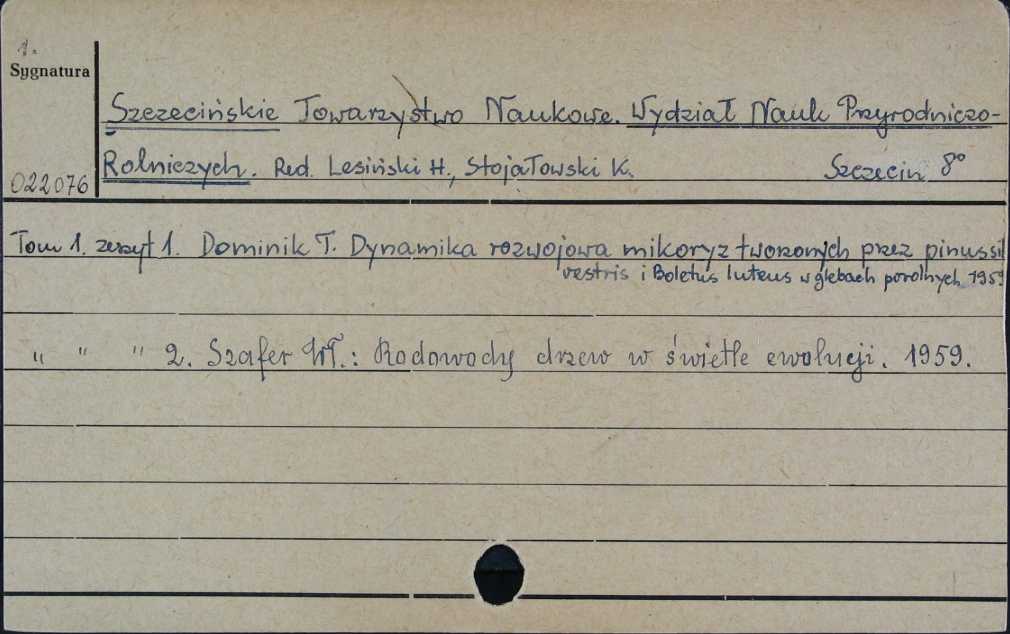 1.
Sygnatura
Szczecińskie Towarzystwo Naukowe. Wydział Nauk Przyrodniczo-
Rolniczych. Red. Lesiński H., Stojałowski K. Szczecin 8°
022076
Tom 1. zeszyt 1. Dominik T. Dynamika rozwojowa mikoryz tworzonych przez pinussil
vestris i Boletus luteus w glebach porolnych 1959
" " " 2. Szafer Wł.: Rodowody drzew w świetle ewolucji. 1959.